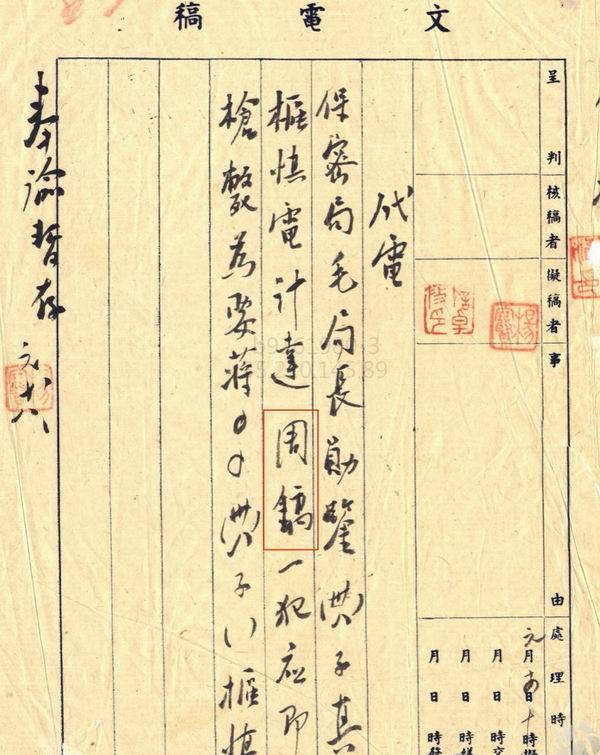 文電稿
呈判
核稿者
擬稿者
事由
處理時
元月 日十時
月日時交
月日時
月日時發
代電
保密局毛局長勛鑒 子真
樞慎電計達周鎬一犯應即
槍斃為要蔣 子 樞慎
奉諭暫存
元 十八